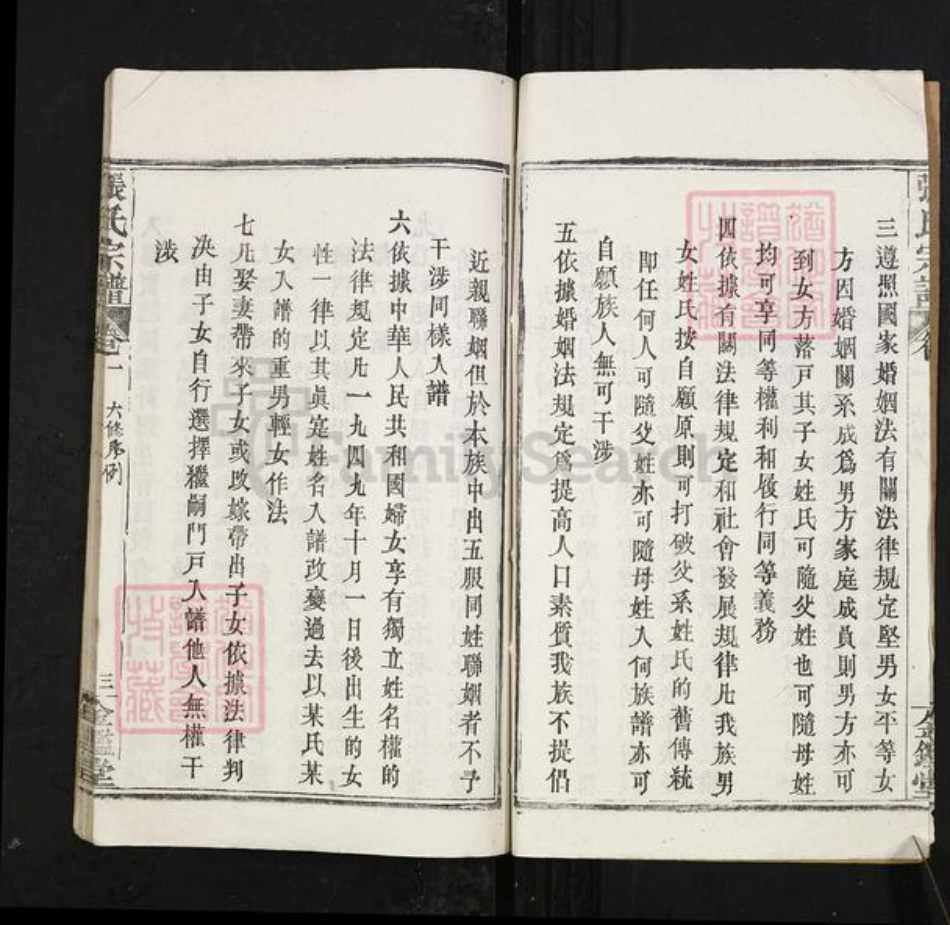 三遵照國家婚姻法有關法律規定堅男女平等女
方因婚姻關系成爲男方家庭成員則男方亦可
到女方落戸其子女姓氏可隨父姓也可隨母姓
均可享同等權利和履行同等義務
四依據有關法律規定和社會發展規律凡我族男
女姓氏按自願原則可打破父系姓氏的舊傳統
即任何人可隨父姓亦可隨母姓入何族譜亦可
自願族人無可干涉
五依據婚姻法規定爲提高人口素質我族不提倡
近親聯姻但於本族中出五服同姓聯姻者不予
干涉同樣入譜
六依據中華人民共和國婦女享有獨立姓名權的
法律規定凡一九四九年十月一日後出生的女
性一律以其眞寔姓名入譜改變過去以某氏某
女入譜的重男輕女作法
七凡娶妻帶來子女或改嫁帶出子女依據法律判
决由子女自行選擇繼嗣門戸入譜他人無權干
涉
張氏宗譜
卷一
六修序例
三
金鑑堂
FamilySearch